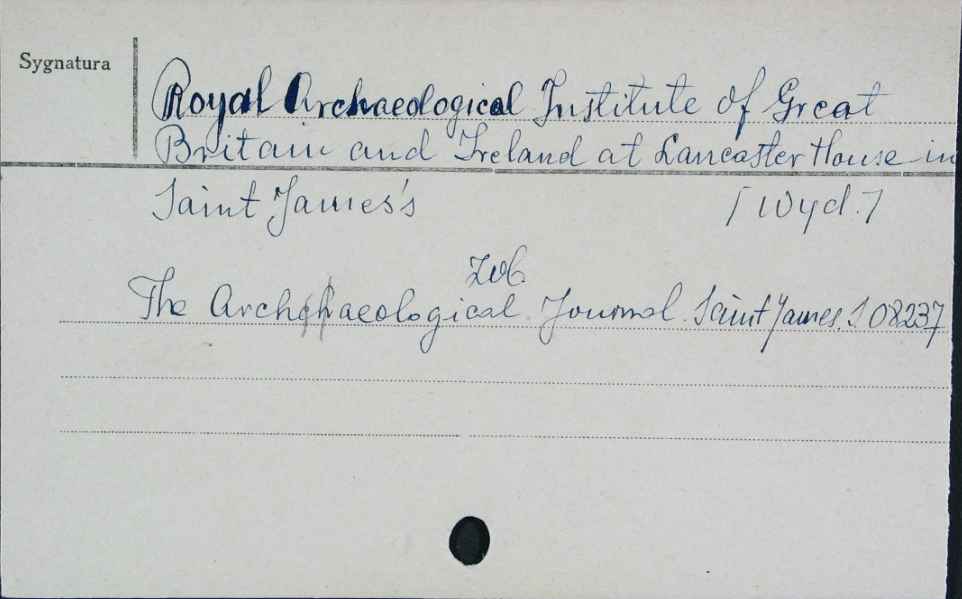 Sygnatura
Royal Archaeological Institute of Great
Britain and Ireland at Lancaster House in
Saint James's [Wyd.]
Zob.
The Archaeological Journal. Saint James. S 08237